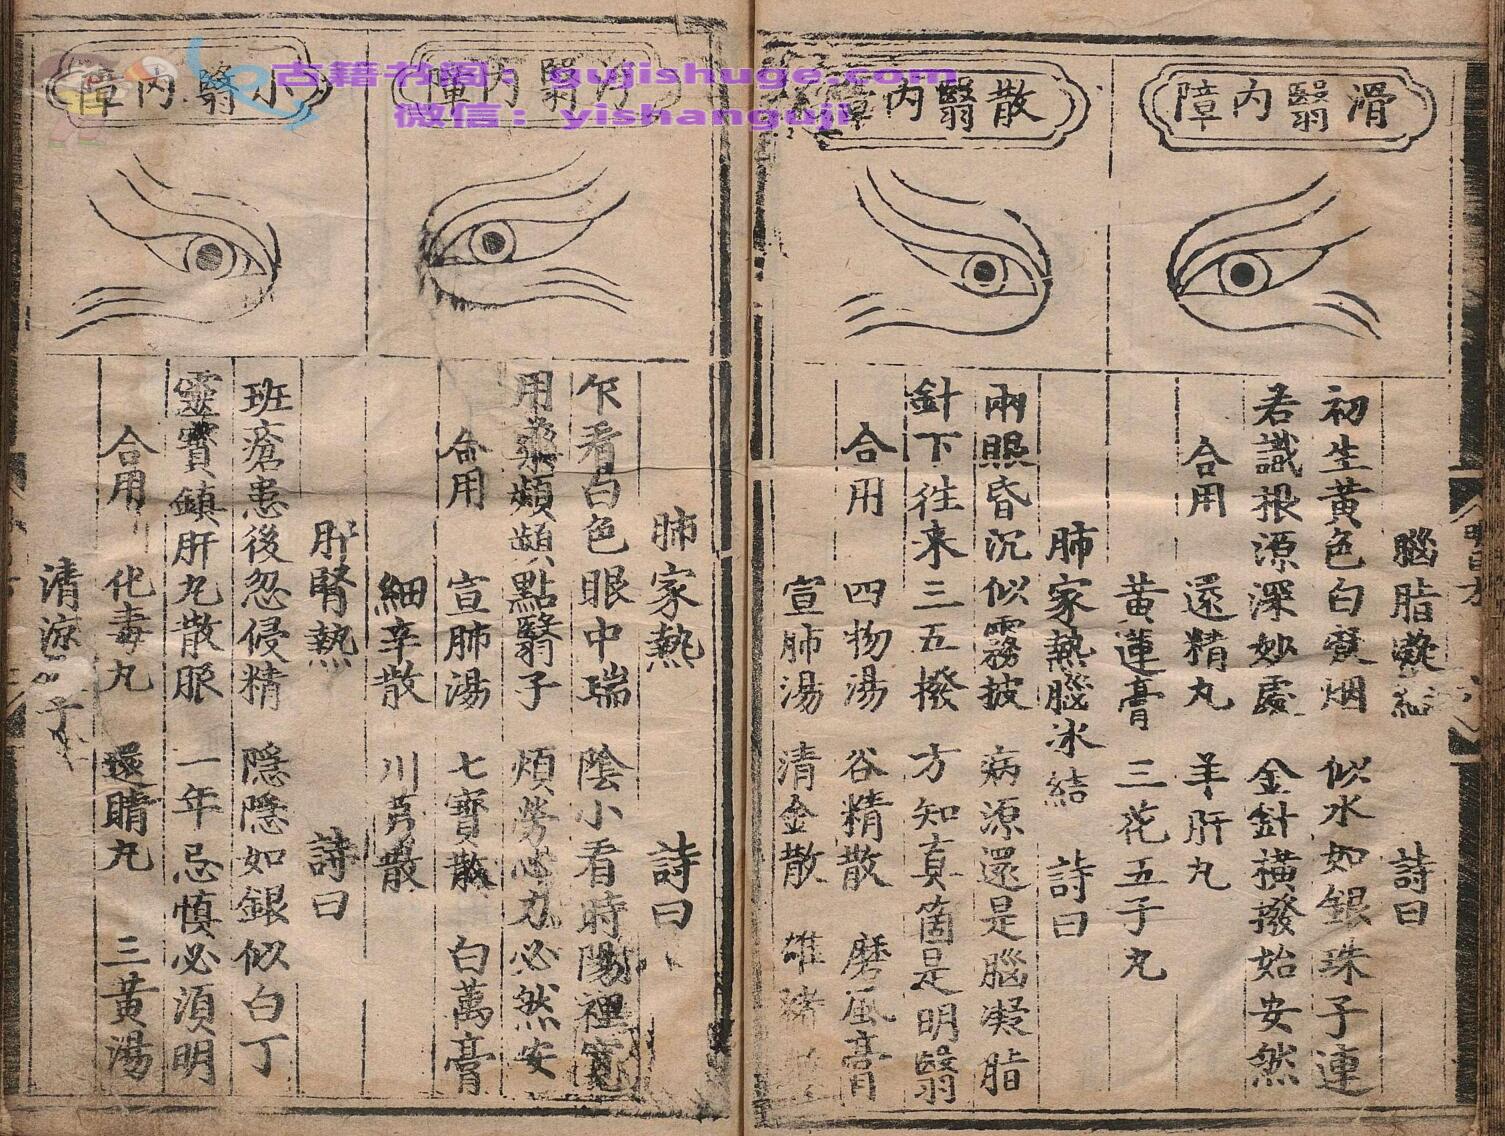 滑翳內障
腦脂凝結　詩曰
初生黃色白變烟　似水如銀珠子連
若識根源深妙處　金針橫撥始安然
合用　還精丸　羊肝丸
黃蓮膏　三花五子丸
散翳內障
肺家熱腦冰結　詩曰
兩眼昏沉似霧披　病源還是腦凝脂
針下往來三五撥　方知真箇是明翳
合用　四物湯　谷精散　磨風膏
宣肺湯　清金散　雄猪
翳內障
肺家熱　詩曰
乍看白色眼中瑞　陰小看時陽裡寬
用藥頻頻點翳子　煩勞心力必然安
合用　宣肺湯　七寶散　白萬膏
細辛散　川芎散
小翳內障
肝腎熱　詩曰
班瘡患後忽侵精　隱隱如銀似白丁
靈寶鎮肝丸散服　一年忌慎必須明
合用　化毒丸　還睛丸　三黃湯
清涼子
古籍书阁：gujishuge.com
微信：yishanguji